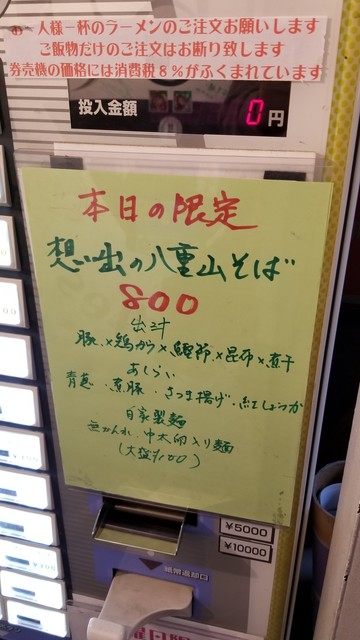 お一人様一杯のラーメンのご注文お願いします
ご飯物だけのご注文はお断り致します
券売機の価格には消費税8%がふくまれています
投入金額 0円
本日の限定
想い出の八重山そば
800
出汁
豚×鶏がら×鰹節×昆布×煮干
あしらい
青葱・煮豚・さつま揚げ・紅しょうが
自家製麺
無かんすい 中太卵入り麺
(大盛り100)
¥5000
¥10000
紙幣返却口